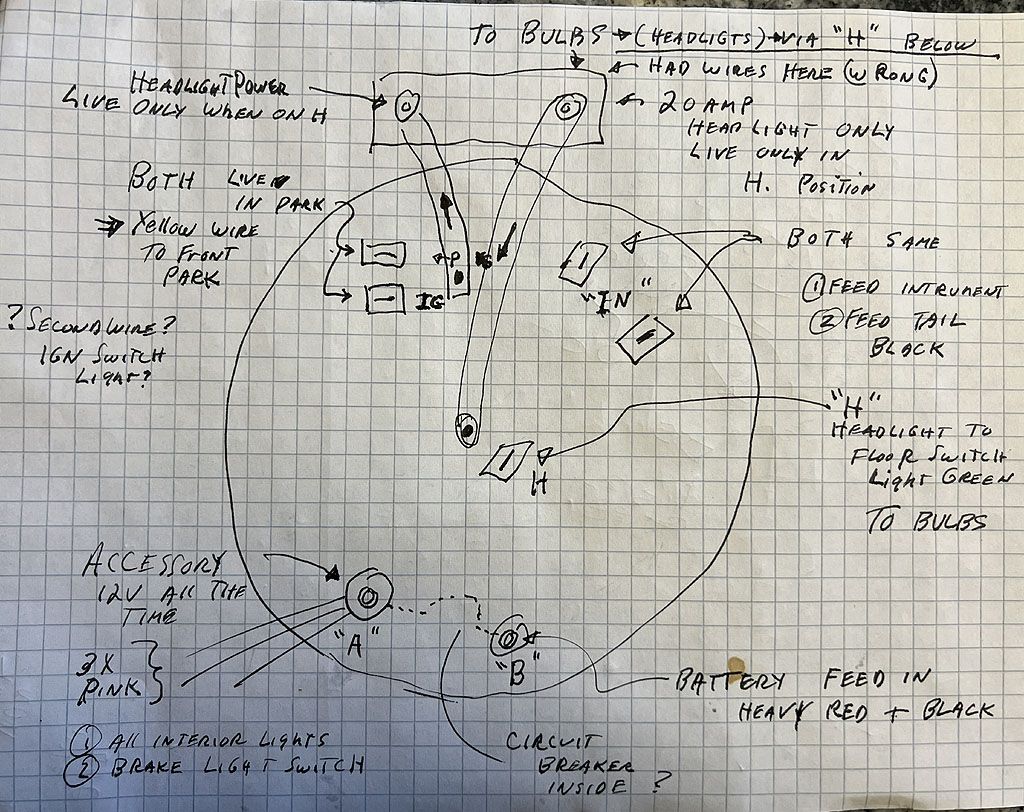 TO BULBS → (HEADLIGTS) → VIA "H" BELOW
HAD WIRES HERE (WRONG)
20 AMP
HEADLIGHT ONLY
LIVE ONLY IN
H. POSITION
HEADLIGHT POWER
LIVE ONLY WHEN ON H
BOTH LIVE
IN PARK
YELLOW WIRE
TO FRONT
PARK
P
IG
"IN"
BOTH SAME
① FEED INTRUMENT
② FEED TAIL
BLACK
? SECOND WIRE?
IGN SWITCH
LIGHT?
"H"
HEADLIGHT TO
FLOOR SWITCH
LIGHT GREEN
TO BULBS
H
ACCESSORY
12V ALL THE
TIME
"A"
"B"
3X
PINK
① ALL INTERIOR LIGHTS
② BRAKE LIGHT SWITCH
BATTERY FEED IN
HEAVY RED + BLACK
CIRCUIT
BREAKER
INSIDE ?